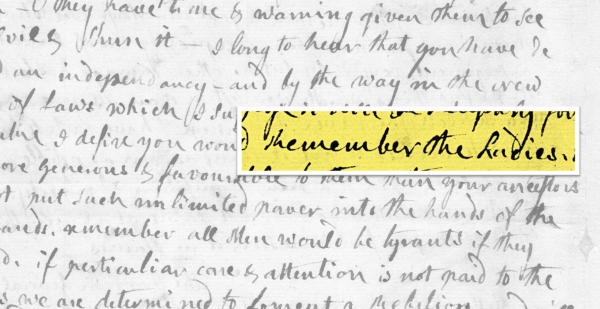 they have time & warning given them to see
evil & shun it — I long to hear that you have de
an independancy — and by the way in the new
of Laws which I
I desire you would Remember the Ladies,
more generous & favourable to them than your ancestors
put such unlimited power into the hands of the
remember all Men would be tyrants if they
if perticuliar care & attention is not paid to the
we are determined to foment a Rebelion